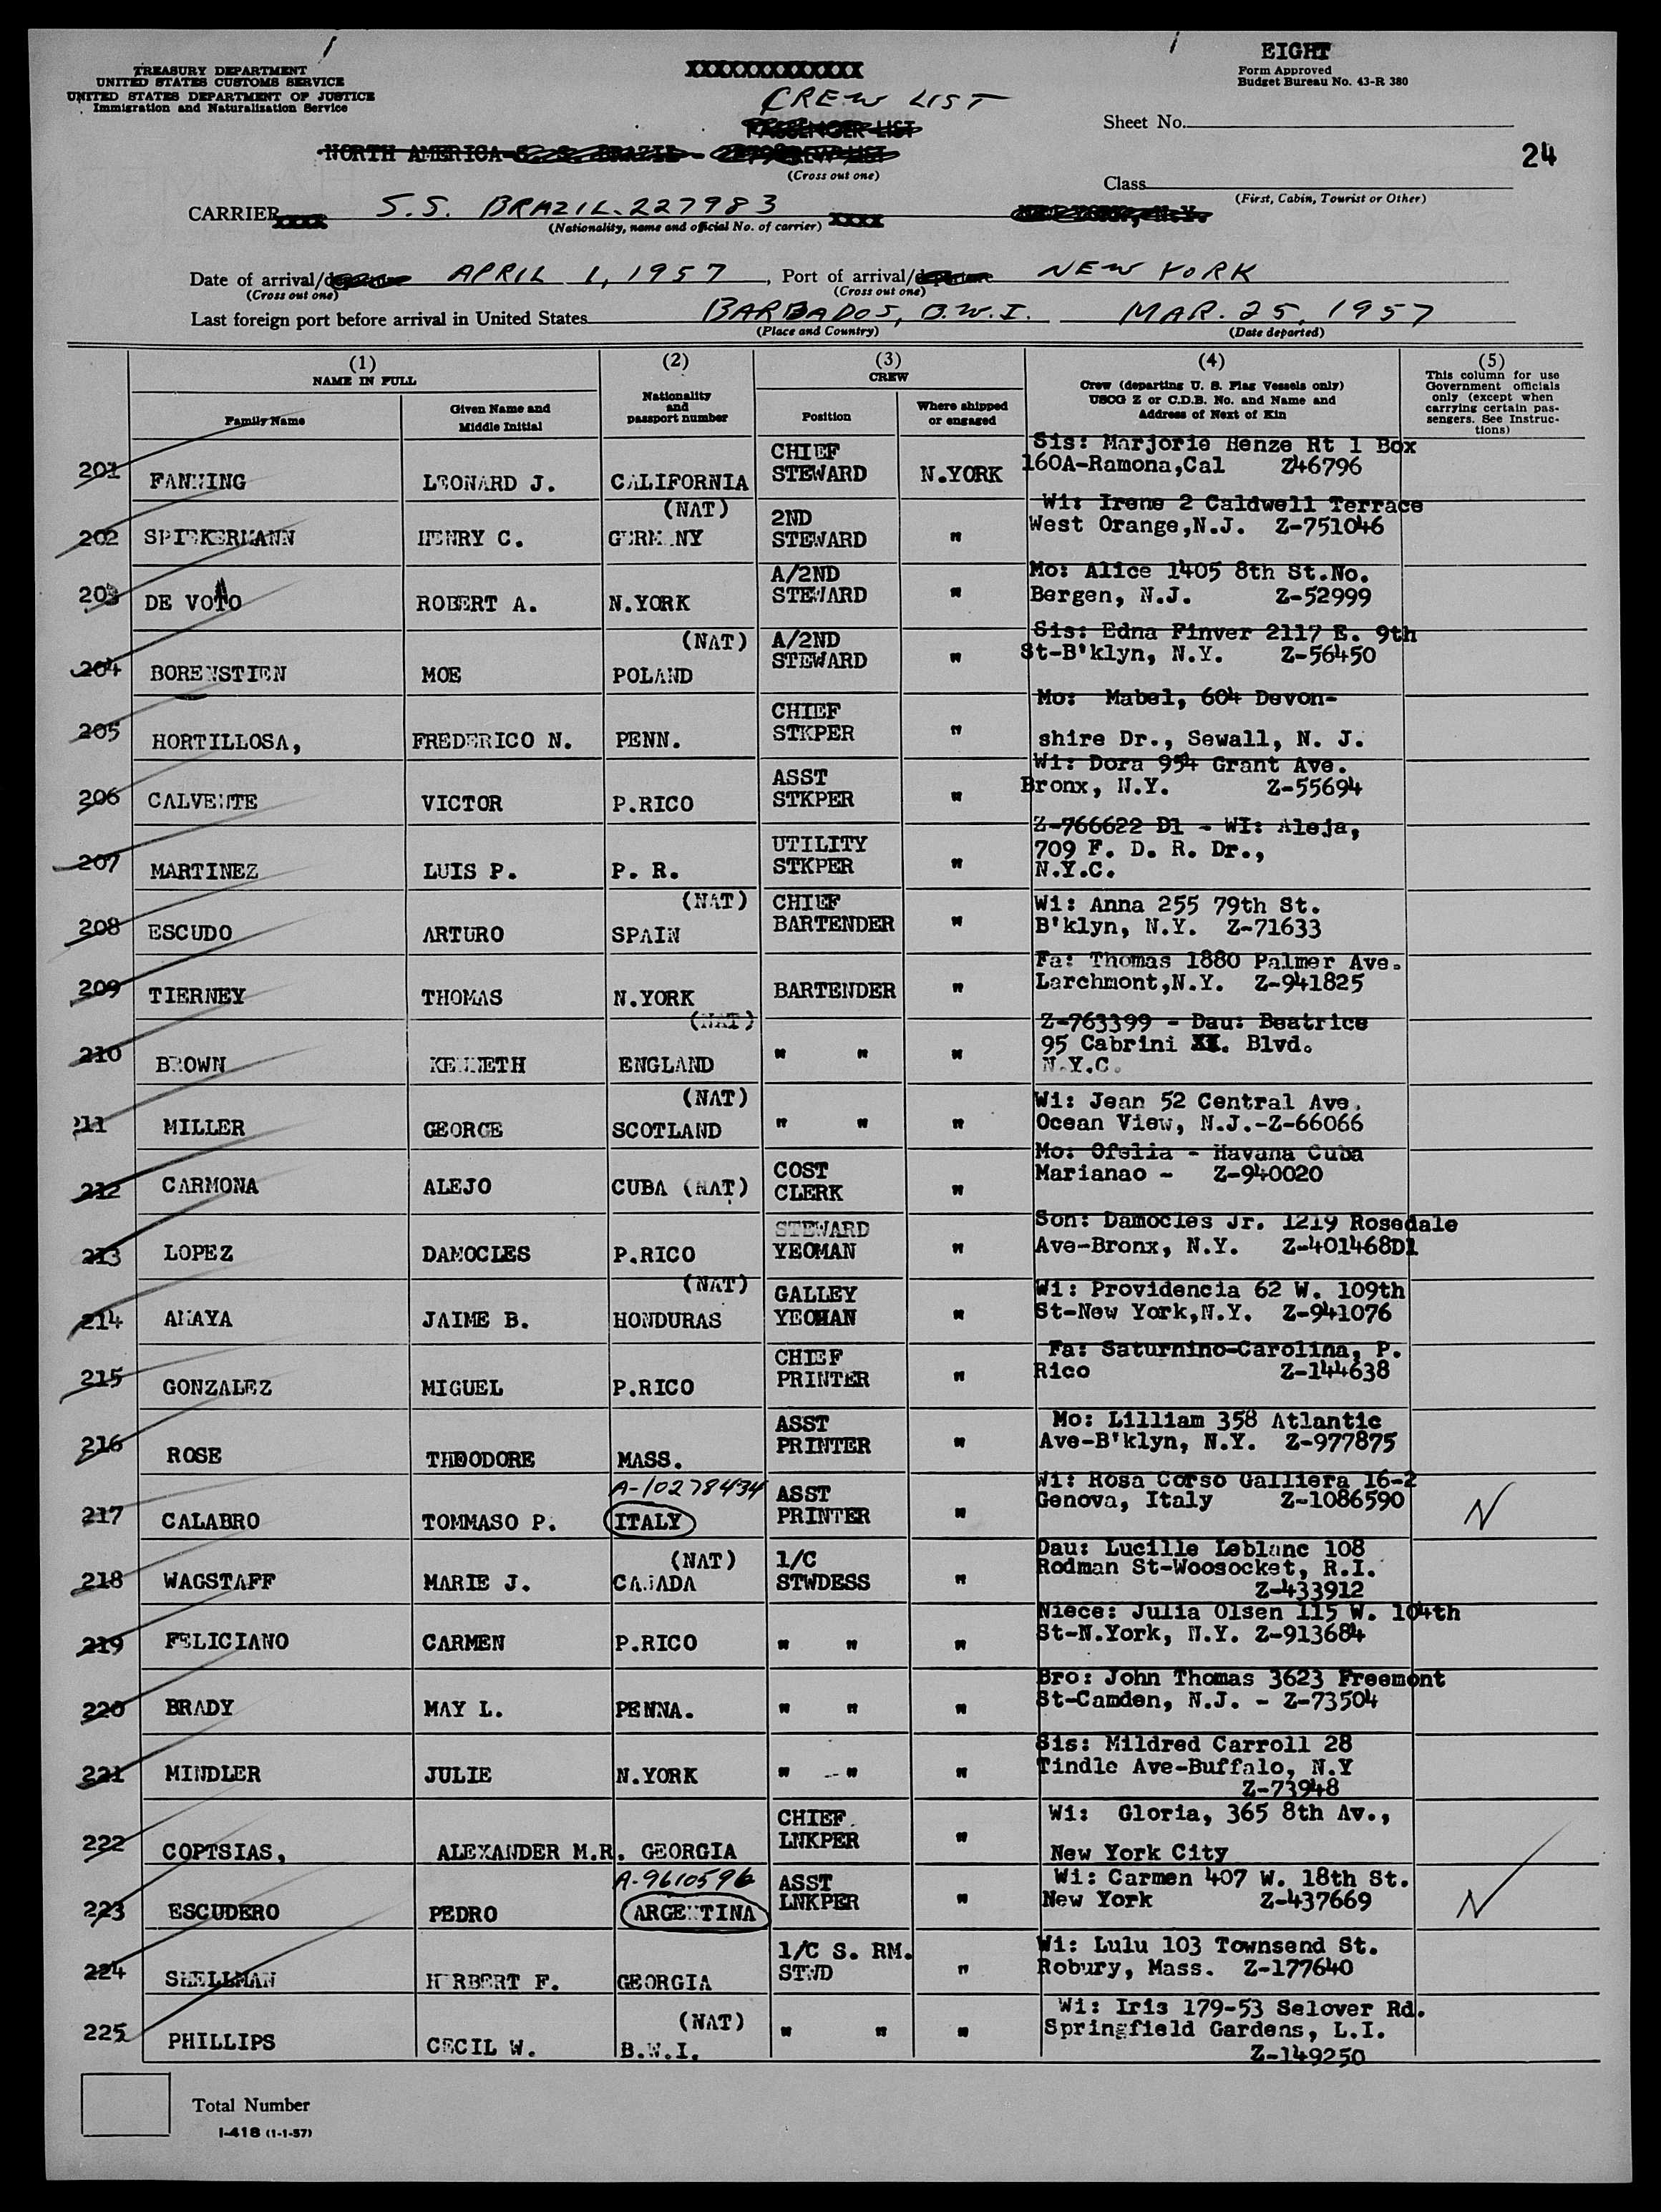 TREASURY DEPARTMENT
UNITED STATES CUSTOMS SERVICE
UNITED STATES DEPARTMENT OF JUSTICE
Immigration and Naturalization Service
XXXXXXXXXXXXX
CREW LIST
PASSENGER LIST
NORTH AMERICA-S. S. BRAZIL -
(Cross out one)
EIGHT
Form Approved
Budget Bureau No. 43-R 380
Sheet No.
24
Class
(First, Cabin, Tourist or Other)
CARRIER XXXX S.S. BRAZIL-227983 XXXX
(Nationality, name and official No. of carrier)
Date of arrival/ APRIL 1, 1957, Port of arrival/ NEW YORK
(Cross out one) (Cross out one)
Last foreign port before arrival in United States BARBADOS, B.W.I. MAR. 25, 1957
(Place and Country) (Date departed)
(1) NAME IN FULL
Family Name
Given Name and Middle Initial
(2) Nationality and passport number
(3) CREW
Position
Where shipped or engaged
(4) Crew (departing U. S. Flag Vessels only) USCG Z or C.D.B. No. and Name and Address of Next of Kin
(5) This column for use Government officials only (except when carrying certain passengers. See Instructions)
201 FANNING LEONARD J. CALIFORNIA CHIEF STEWARD N.YORK Sis: Marjorie Henze Rt 1 Box 160A-Ramona,Cal Z46796
202 SPIEKERMANN HENRY C. (NAT) GERMANY 2ND STEWARD " Wi: Irene 2 Caldwell Terrace West Orange,N.J. Z-751046
203 DE VOTO ROBERT A. N.YORK A/2ND STEWARD " Mo: Alice 1405 8th St.No. Bergen, N.J. Z-52999
204 BORENSTIEN MOE (NAT) POLAND A/2ND STEWARD " Sis: Edna Finver 2117 E. 9th St-B'klyn, N.Y. Z-56450
205 HORTILLOSA, FREDERICO N. PENN. CHIEF STKPER " Mo: Mabel, 604 Devon- shire Dr., Sewall, N. J.
206 CALVENTE VICTOR P.RICO ASST STKPER " Wi: Dora 954 Grant Ave. Bronx, N.Y. Z-55694
207 MARTINEZ LUIS P. P. R. UTILITY STKPER " Z-766622 D1 - WI: Aleja, 709 F. D. R. Dr., N.Y.C.
208 ESCUDO ARTURO (NAT) SPAIN CHIEF BARTENDER " Wi: Anna 255 79th St. B'klyn, N.Y. Z-71633
209 TIERNEY THOMAS N.YORK BARTENDER " Fa: Thomas 1880 Palmer Ave. Larchmont,N.Y. Z-941825
210 BROWN KENNETH (NAT) ENGLAND " " " Z-763399 - Dau: Beatrice 95 Cabrini XX. Blvd. N.Y.C.
211 MILLER GEORGE (NAT) SCOTLAND " " " Wi: Jean 52 Central Ave. Ocean View, N.J.-Z-66066
212 CARMONA ALEJO CUBA (NAT) COST CLERK " Mo: Ofelia - Havana Cuba Marianao - Z-940020
213 LOPEZ DAMOCLES P.RICO STEWARD YEOMAN " Son: Damocles Jr. 1219 Rosedale Ave-Bronx, N.Y. Z-401468D1
214 AMAYA JAIME B. (NAT) HONDURAS GALLEY YEOMAN " Wi: Providencia 62 W. 109th St-New York,N.Y. Z-941076
215 GONZALEZ MIGUEL P.RICO CHIEF PRINTER " Fa: Saturnino-Carolina, P. Rico Z-144638
216 ROSE THEODORE MASS. ASST PRINTER " Mo: Lilliam 358 Atlantic Ave-B'klyn, N.Y. Z-977875
217 CALABRO TOMMASO P. A-10278434 ITALY ASST PRINTER " Wi: Rosa Corso Galliera 16-2 Genova, Italy Z-1086590 N
218 WAGSTAFF MARIE J. (NAT) CANADA 1/C STWDESS " Dau: Lucille Leblanc 108 Rodman St-Woosocket, R.I. Z-433912
219 FELICIANO CARMEN P.RICO " " " Niece: Julia Olsen 115 W. 104th St-N.York, N.Y. Z-913684
220 BRADY MAY L. PENNA. " " " Bro: John Thomas 3623 Freemont St-Camden, N.J. - Z-73504
221 MINDLER JULIE N.YORK " " " Sis: Mildred Carroll 28 Tindle Ave-Buffalo, N.Y Z-73948
222 COPTSIAS, ALEXANDER M.R. GEORGIA CHIEF LNKPER " Wi: Gloria, 365 8th Av., New York City
223 ESCUDERO PEDRO A-9610596 ARGENTINA ASST LNKPER " Wi: Carmen 407 W. 18th St. New York Z-437669 N
224 SHELLMAN HERBERT F. GEORGIA 1/C S. RM. STWD " Wi: Lulu 103 Townsend St. Robury, Mass. Z-177640
225 PHILLIPS CECIL W. (NAT) B.W.I. " " " Wi: Iris 179-53 Selover Rd. Springfield Gardens, L.I. Z-149250
Total Number
I-418 (1-1-57)